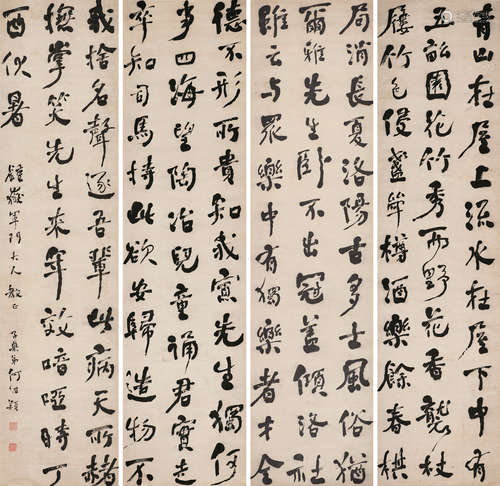 青山在屋上流水在屋下中有
五畝園花竹秀而野花香襲杖
屨竹色侵盞斝樽酒樂餘春棋
局消長夏洛陽古多士風俗猶
爾雅先生臥不出冠蓋傾洛社
雖云與眾樂中有獨樂者才全
德不形所貴知我寡先生獨何
事四海望陶冶兒童誦君實走
卒知司馬持此欲安歸造物不
我捨名聲逐吾輩此病天所赭
撫掌笑先生來年效喑啞時丁
酉伏暑
軍門大人教正